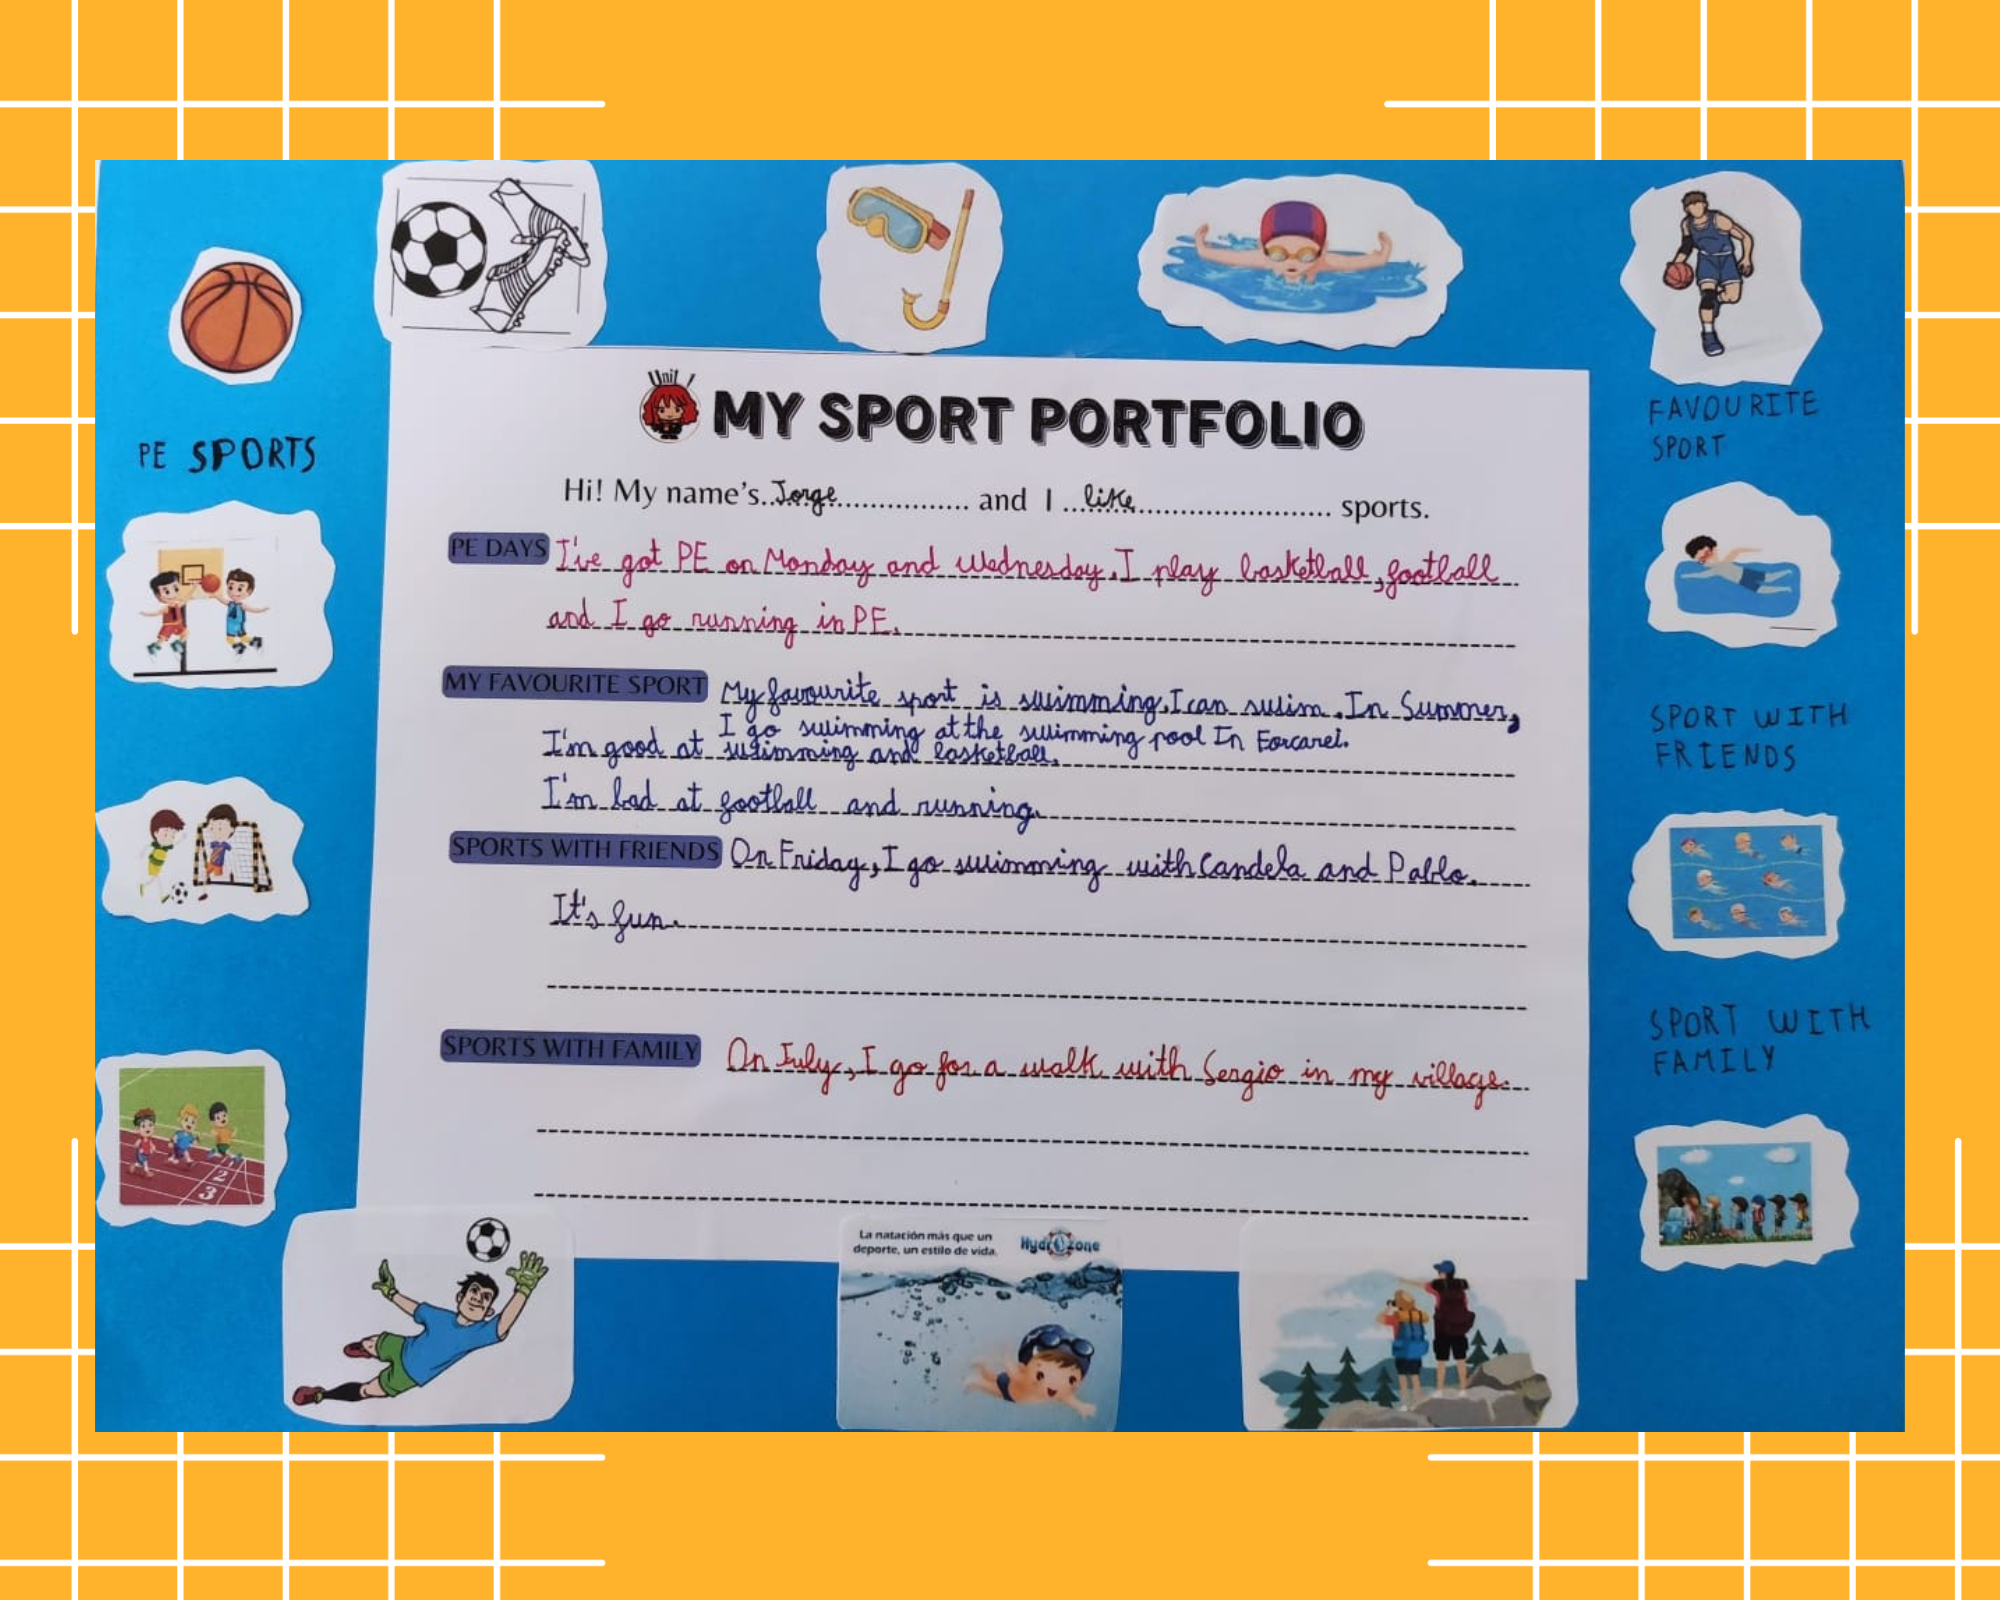 Unit 1
MY SPORT PORTFOLIO
Hi! My name's Jorge and I like sports.
PE DAYS I've got PE on Monday and Wednesday. I play basketball, football
and I go running in PE.
MY FAVOURITE SPORT My favourite sport is swimming. I can swim. In Summer,
I go swimming at the swimming pool In Forcarei.
I'm good at swimming and basketball.
I'm bad at football and running.
SPORTS WITH FRIENDS On Friday, I go swimming with Candela and Pablo.
It's fun.
SPORTS WITH FAMILY On July, I go for a walk with Sergio in my village.
PE SPORTS
2
3
FAVOURITE
SPORT
SPORT WITH
FRIENDS
SPORT WITH
FAMILY
La natación más que un
deporte, un estilo de vida.
Hydrozone